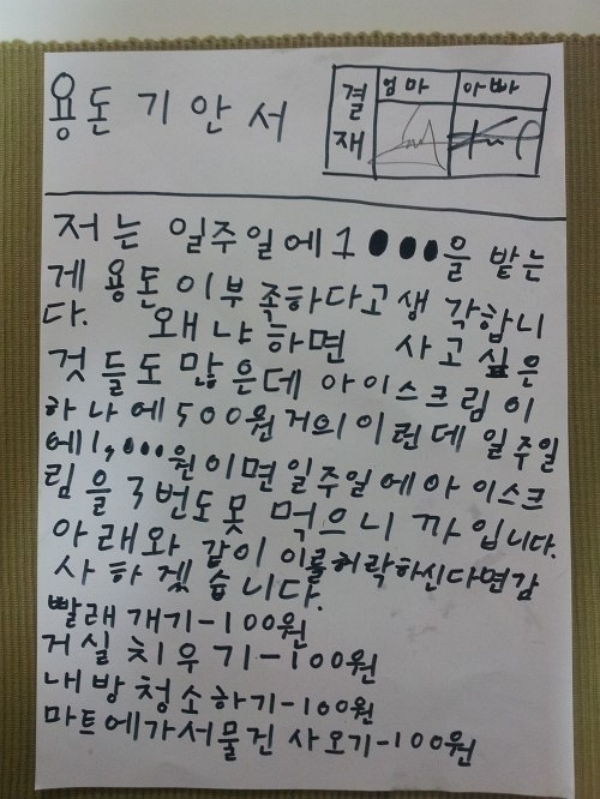 용돈 기안서
결재 엄마 아빠
저는 일주일에 1●●●을 받는
게 용돈이 부족하다고 생각합니
다. 왜냐하면 사고싶은
것들도 많은데 아이스크림이
하나에 500원 거의 이런데 일주일
에 1,000원이면 일주일에 아이스크
림을 3번도 못 먹으니까입니다.
아래와 같이 이를 허락하신다면 감
사하겠습니다.
빨래개기-100원
거실치우기-100원
내방청소하기-100원
마트에가서물건 사오기-100원